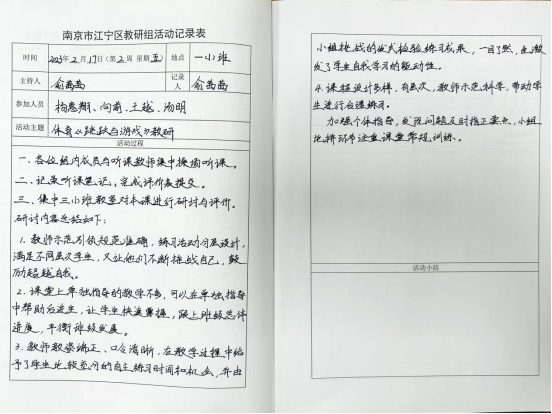 南京市江宁区教研组活动记录表
时间 2025年2月17日(第2周 星期五) 地点 一小班
主持人 俞茜茜 记录人 俞茜茜
参加人员 杨惠翔、向前、王越、汤明
活动主题 体育《跳跃与游戏》教研
活动过程
一、各位组内成员与听课教师集中操场听课。
二、记录听课笔记,完成评价表提交。
三、集中三小班教室对本课进行研讨与评价。
研讨内容总结如下:
1. 教师示范引领规范准确,练习活动分层设计,
满足不同层次学生,又让他们不断挑战自己,鼓
励超越自我。
2. 课堂上单独指导的教学不多,可以在单独指导
中帮助后进生,让学生快速掌握,跟上班级总体
进度,平衡班级发展。
3. 教师教姿端正、口令清晰,在教学过程中给
予了学生比较充分的自主练习时间和机会,并由
小组挑战的仪式检验练习成果,一目了然,也激
发了学生自我学习的能动性。
4. 课程设计多样,有层次,教师示范科学,带动学
生进行合理练习。
加强个体指导,发现问题及时指正要点,小组
比拼环节注重课堂常规训练。
活动小结